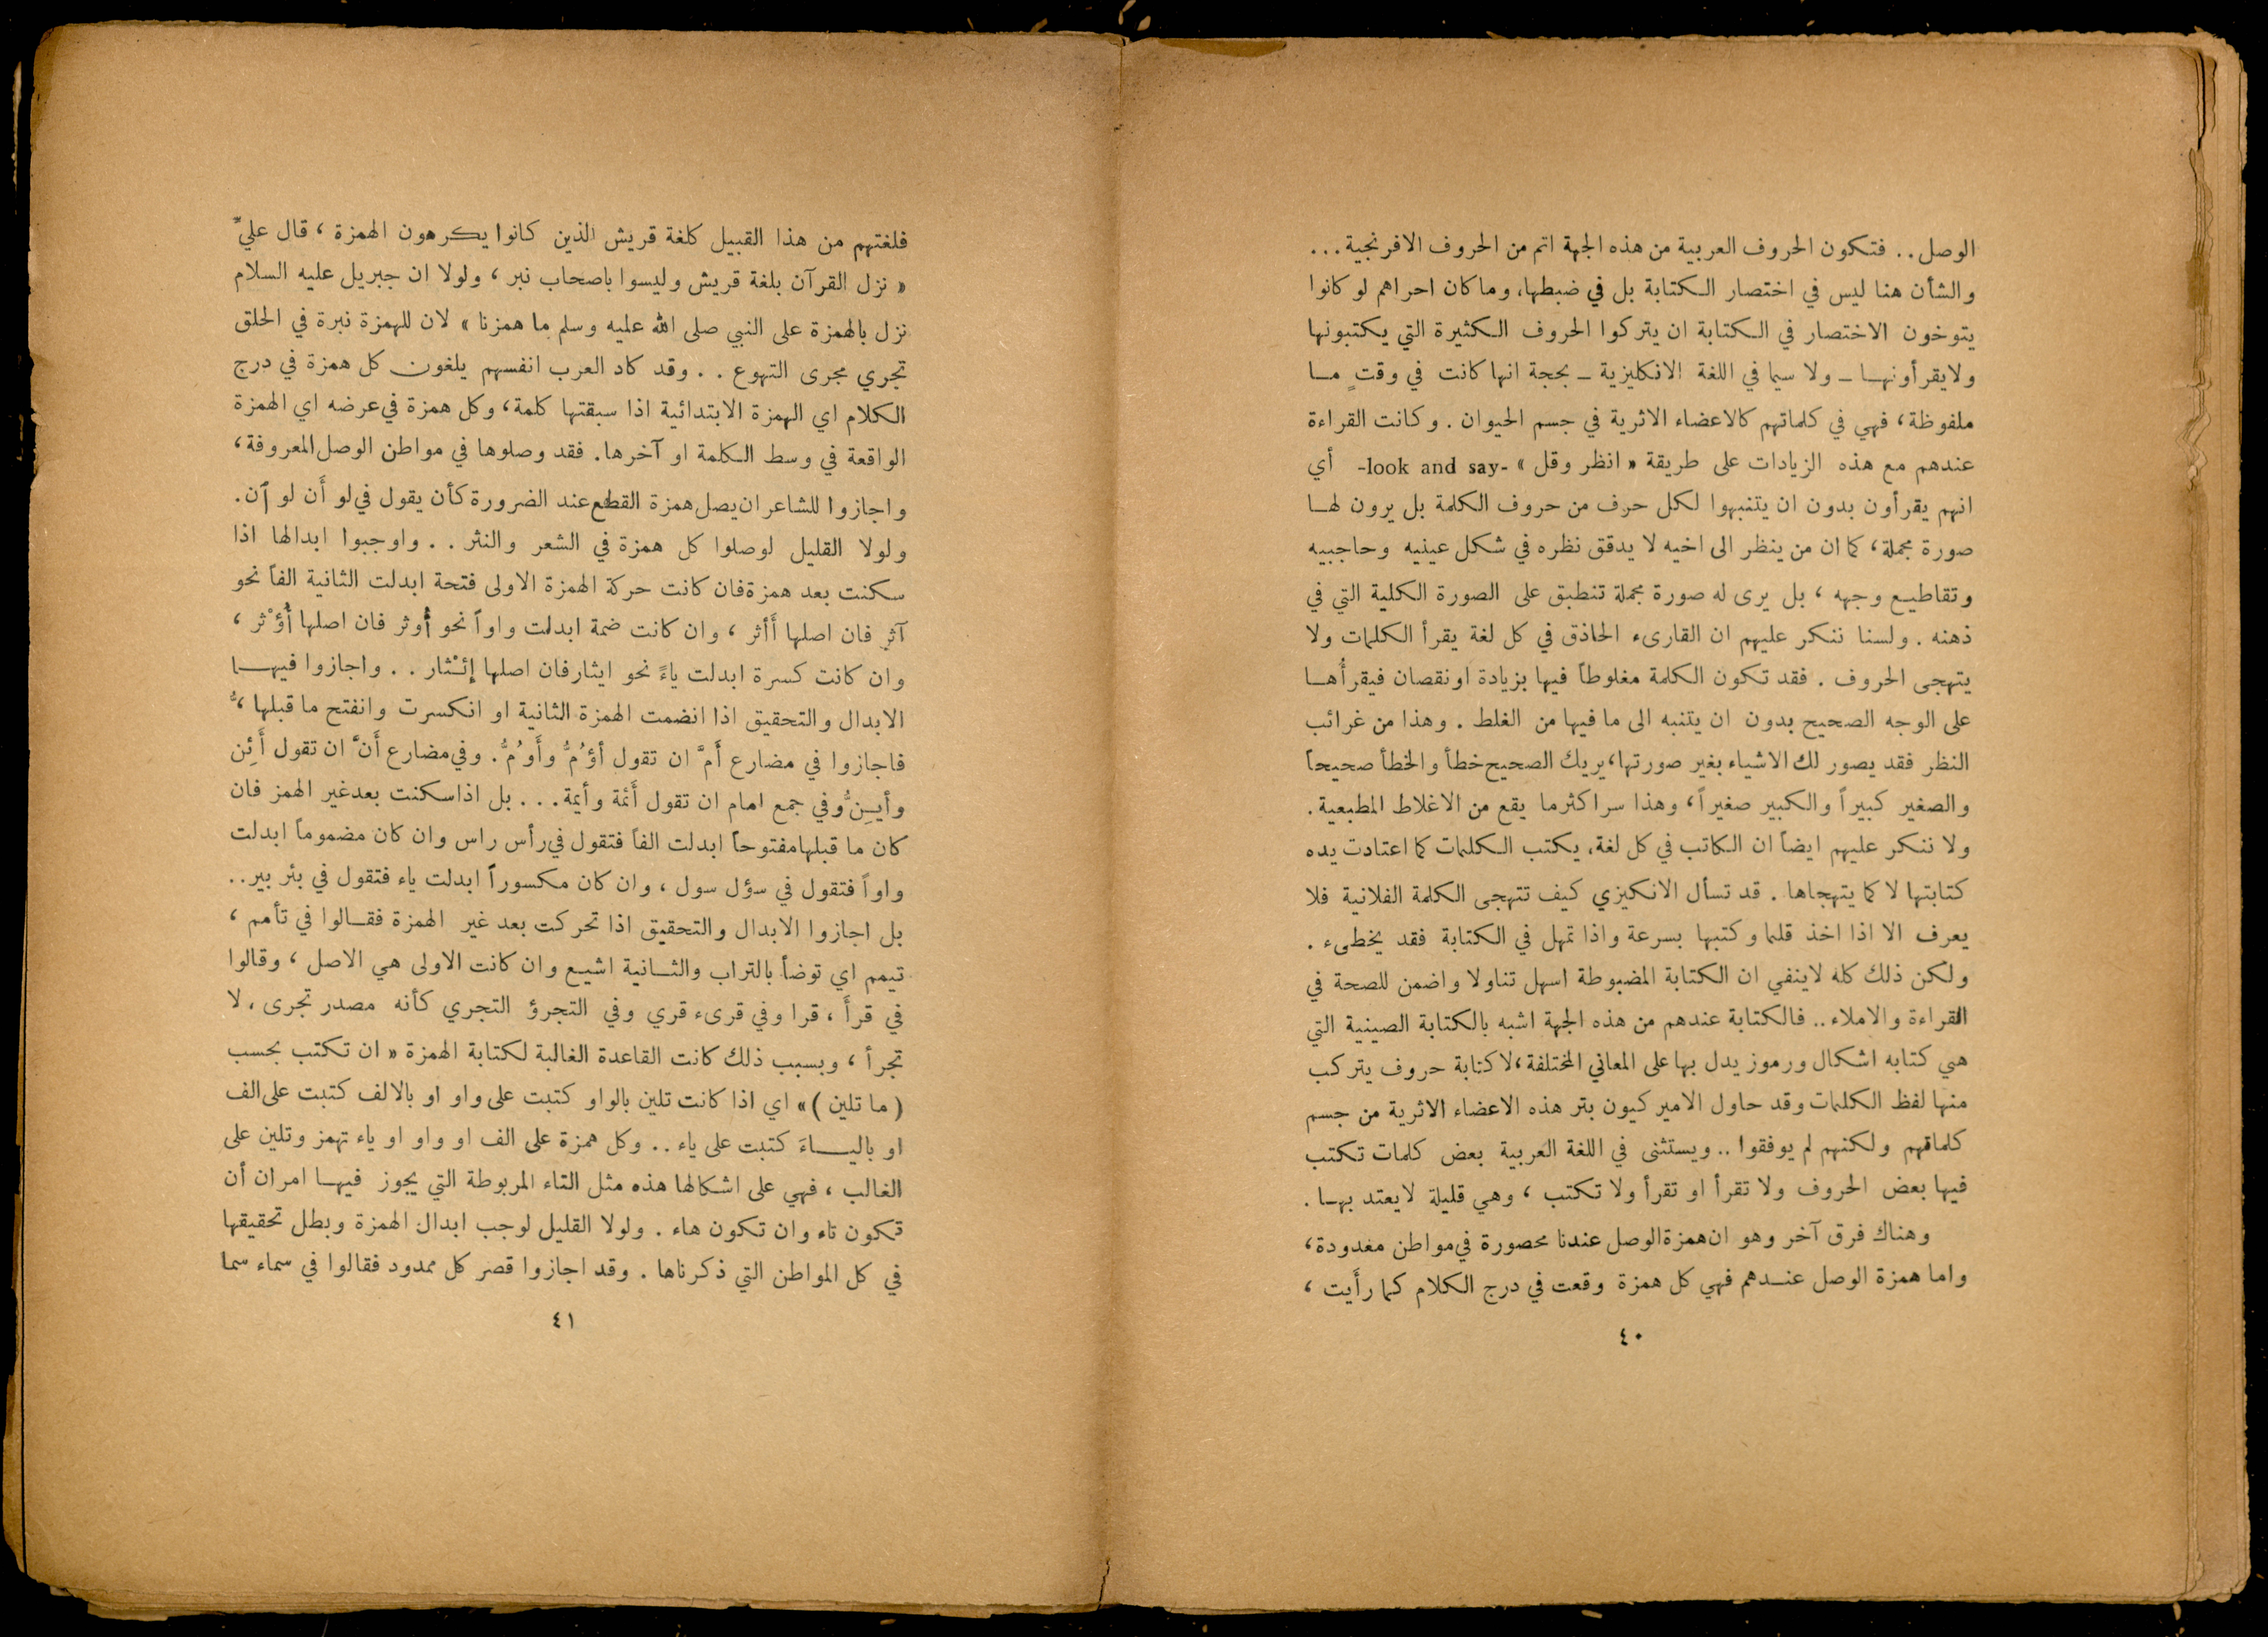 الوصل.. فتكون الحروف العربية من هذه الجهة اتم من الحروف الافرنجية...
والشأن هنا ليس في اختصار الكتابة بل في ضبطها، وما كان احراهم لو كانوا
يتوخون الاختصار في الكتابة ان يتركوا الحروف الكثيرة التي يكتبونها
ولا يقرأونها ـ ولا سيما في اللغة الانكليزية ـ بحجة انها كانت في وقتٍ ما
ملفوظة، فهي في كلماتهم كالاعضاء الاثرية في جسم الحيوان. وكانت القراءة
عندهم مع هذه الزيادات على طريقة « انظر وقل » -look and say- أي
انهم يقرأون بدون ان يتنبهوا لكل حرف من حروف الكلمة بل يرون لها
صورة مجملة، كما ان من ينظر الى اخيه لا يدقق نظره في شكل عينيه وحاجبيه
وتقاطيع وجهه، بل يرى له صورة مجملة تنطبق على الصورة الكلية التي في
ذهنه. ولسنا ننكر عليهم ان القارىء الحاذق في كل لغة يقرأ الكلمات ولا
يتهجى الحروف. فقد تكون الكلمة مغلوطاً فيها بزيادة او نقصان فيقرأُها
على الوجه الصحيح بدون ان يتنبه الى ما فيها من الغلط. وهذا من غرائب
النظر فقد يصور لك الاشياء بغير صورتها، يريك الصحيح خطأ والخطأ صحيحاً
والصغير كبيراً والكبير صغيراً، وهذا سر اكثر ما يقع من الاغلاط المطبعية.
ولا ننكر عليهم ايضاً ان الكاتب في كل لغة، يكتب الكلمات كما اعتادت يده
كتابتها لا كما يتهجاها. قد تسأل الانكيزي كيف تتهجى الكلمة الفلانية فلا
يعرف الا اذا اخذ قلما وكتبها بسرعة واذا تمهل في الكتابة فقد يخطىء.
ولكن ذلك كله لا ينفي ان الكتابة المضبوطة اسهل تناولا واضمن للصحة في
القراءة والاملاء.. فالكتابة عندهم من هذه الجهة اشبه بالكتابة الصينية التي
هي كتابه اشكال ورموز يدل بها على المعاني المختلفة، لا كتابة حروف يتركب
منها لفظ الكلمات وقد حاول الاميركيون بتر هذه الاعضاء الاثرية من جسم
كلماتهم ولكنهم لم يوفقوا.. ويستثنى في اللغة العربية بعض كلمات تكتب
فيها بعض الحروف ولا تقرأ او تقرأ ولا تكتب، وهي قليلة لا يعتد بها.
وهناك فرق آخر وهو ان همزة الوصل عندنا محصورة في مواطن معدودة،
واما همزة الوصل عندهم فهي كل همزة وقعت في درج الكلام كما رأَيت،
٤٠
فلغتهم من هذا القبيل كلغة قريش الذين كانوا يكرهون الهمزة، قال عليّ
« نزل القرآن بلغة قريش وليسوا باصحاب نبر، ولولا ان جبريل عليه السلام
نزل بالهمزة على النبي صلى الله عليه وسلم ما همزنا » لان للهمزة نبرة في الحلق
تجري مجرى التهوع.. وقد كاد العرب انفسهم يلغون كل همزة في درج
الكلام اي الهمزة الابتدائية اذا سبقتها كلمة، وكل همزة في عرضه اي الهمزة
الواقعة في وسط الكلمة او آخرها. فقد وصلوها في مواطن الوصل المعروفة،
واجازوا للشاعر ان يصل همزة القطع عند الضرورة كأن يقول في لو أَن لو ٱن.
ولولا القليل لوصلوا كل همزة في الشعر والنثر.. واوجبوا ابدالها اذا
سكنت بعد همزة فان كانت حركة الهمزة الاولى فتحة ابدلت الثانية الفاً نحو
آثر فان اصلها أَأثر، وان كانت ضمة ابدلت واواً نحو أُوثر فان اصلها أُؤْثر،
وان كانت كسرة ابدلت ياءً نحو ايثار فان اصلها إئْثار.. واجازوا فيها
الابدال والتحقيق اذا انضمت الهمزة الثانية او انكسرت وانفتح ما قبلها،
فاجازوا في مضارع أَمَّ ان تقول أؤُمُّ وأَوُمُّ. وفي مضارع أَنَّ ان تقول أَئِنُّ
وأيِنُّ وفي جمع امام ان تقول أَئمة وأيمة... بل اذا سكنت بعد غير الهمز فان
كان ما قبلها مفتوحاً ابدلت الفاً فتقول في رأس راس وان كان مضموماً ابدلت
واواً فتقول في سؤل سول، وان كان مكسوراً ابدلت ياء فتقول في بئر بير..
بل اجازوا الابدال والتحقيق اذا تحركت بعد غير الهمزة فقالوا في تأمم،
تيمم اي توضأ بالتراب والثانية اشيع وان كانت الاولى هي الاصل، وقالوا
في قرأَ، قرا وفي قرىء قري وفي التجرؤ التجري كأنه مصدر تجرى، لا
تجرأ، وبسبب ذلك كانت القاعدة الغالبة لكتابة الهمزة « ان تكتب بحسب
( ما تلين )» اي اذا كانت تلين بالواو كتبت على واو او بالالف كتبت على الف
او بالياء كتبت على ياء.. وكل همزة على الف او واو او ياء تهمز وتلين على
الغالب، فهي على اشكالها هذه مثل التاء المربوطة التي يجوز فيها امران أن
تكون تاء وان تكون هاء. ولولا القليل لوجب ابدال الهمزة وبطل تحقيقها
في كل المواطن التي ذكرناها. وقد اجازوا قصر كل ممدود فقالوا في سماء سما
٤١